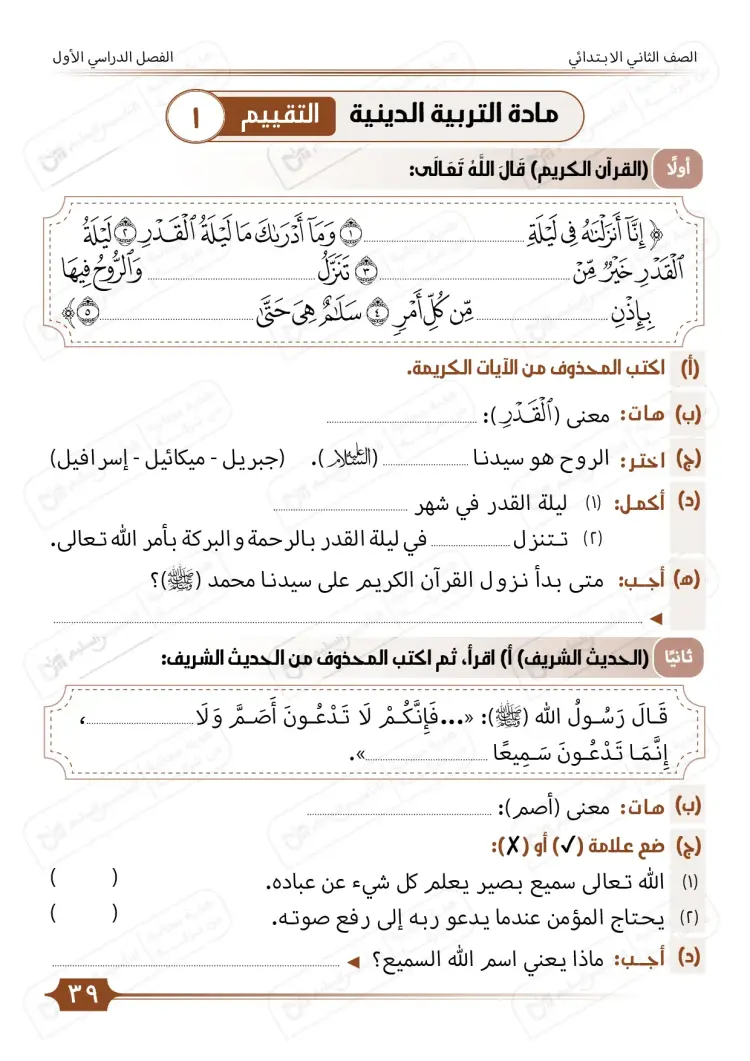 الصف الثاني الابتدائي
الفصل الدراسي الأول
مادة التربية الدينية التقييم ١
أولًا (القرآن الكريم) قَالَ اللَّهُ تَعَالَى:
﴿ إِنَّآ أَنزَلْنَٰهُ فِى لَيْلَةِ .......... ١ وَمَآ أَدْرَىٰكَ مَا لَيْلَةُ ٱلْقَدْرِ ٢ لَيْلَةُ
ٱلْقَدْرِ خَيْرٌ مِّنْ .......... ٣ تَنَزَّلُ .......... وَٱلرُّوحُ فِيهَا
بِإِذْنِ .......... مِّن كُلِّ أَمْرٍ ٤ سَلَٰمٌ هِىَ حَتَّىٰ .......... ٥ ﴾
(أ) اكتب المحذوف من الآيات الكريمة.
(ب) هات: معنى (ٱلْقَدْرِ): ..........
(ج) اختر: الروح هو سيدنا .......... (عليه السلام). (جبريل - ميكائيل - إسرافيل)
(د) أكمل: (١) ليلة القدر في شهر ..........
(٢) تتنزل .......... في ليلة القدر بالرحمة والبركة بأمر الله تعالى.
(ه) أجب: متى بدأ نزول القرآن الكريم على سيدنا محمد (ﷺ)؟
◄ ..........
ثانيًا (الحديث الشريف) أ) اقرأ، ثم اكتب المحذوف من الحديث الشريف:
قَالَ رَسُولُ الله (ﷺ): «...فَإِنَّكُمْ لَا تَدْعُونَ أَصَمَّ وَلَا ..........،
إِنَّمَا تَدْعُونَ سَمِيعًا ..........».
(ب) هات: معنى (أصم): ..........
(ج) ضع علامة (✓) أو (✗):
(١) الله تعالى سميع بصير يعلم كل شيء عن عباده. ( )
(٢) يحتاج المؤمن عندما يدعو ربه إلى رفع صوته. ( )
(د) أجب: ماذا يعني اسم الله السميع؟ ◄ ..........
٣٩